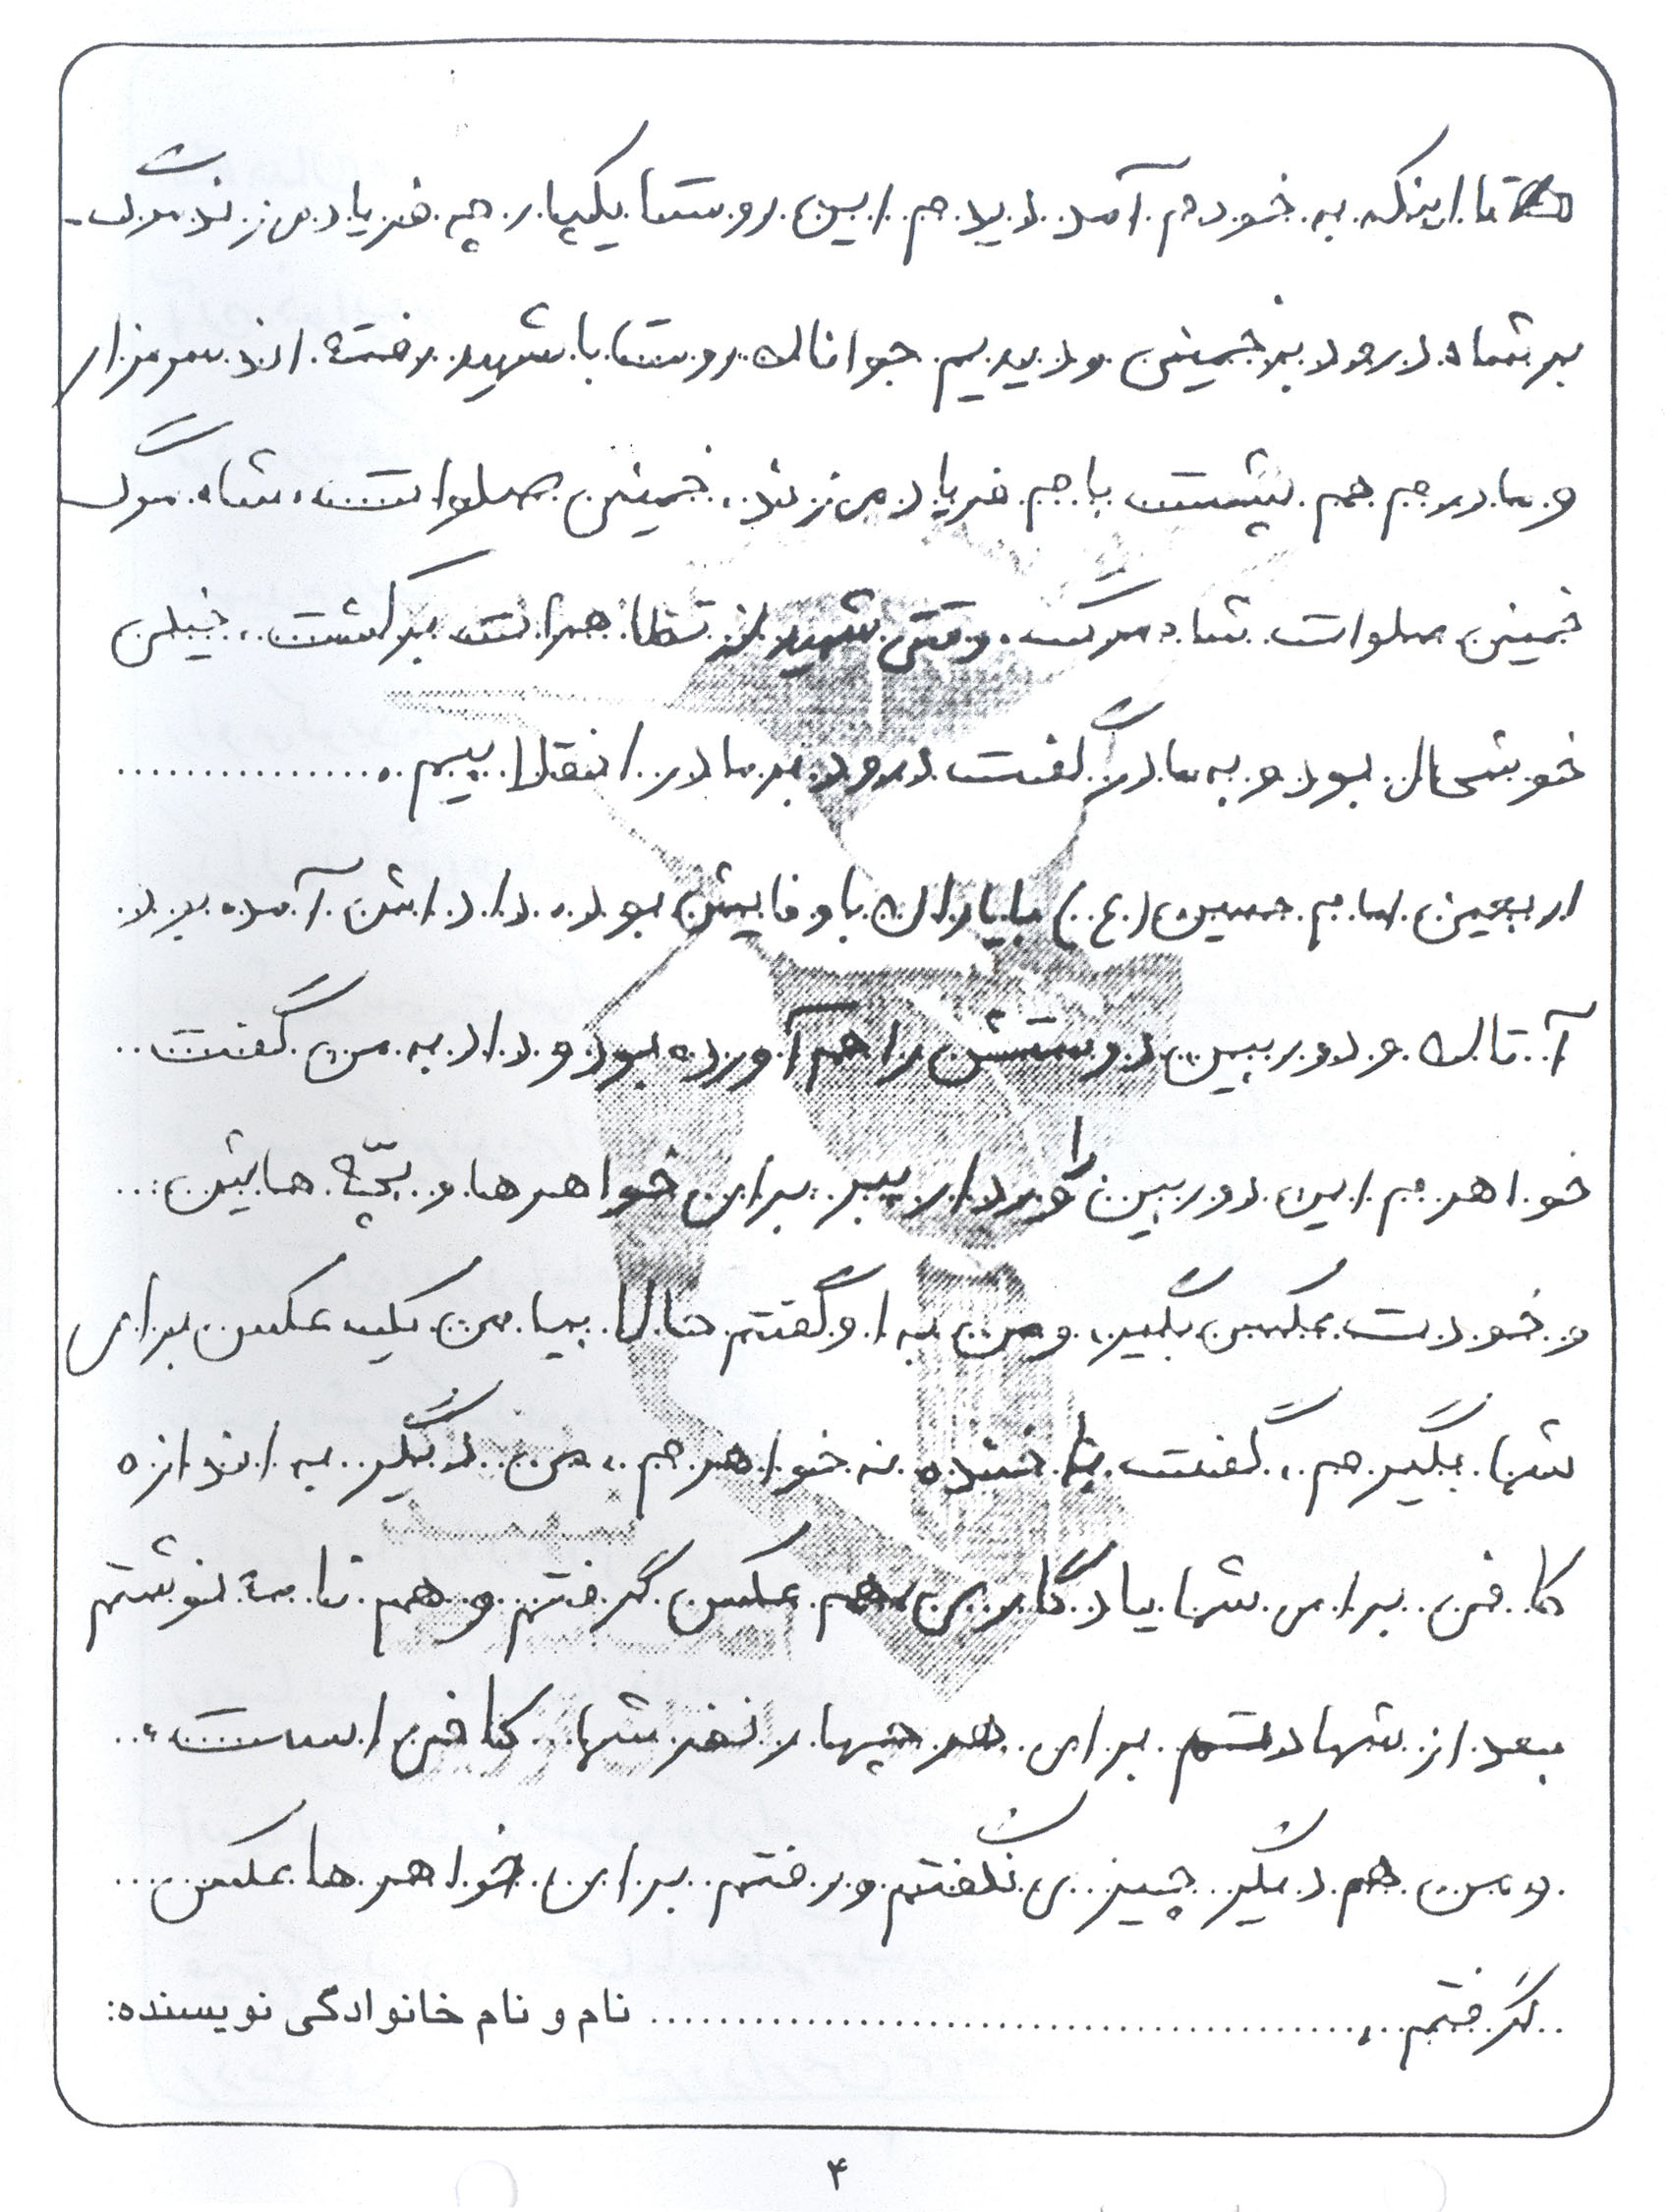 تا اینکه به خودم آمد دیدم این روستا یکپارچه فریاد می زند مرگ
بر شاه درود بر خمینی و دیدیم جوانان روستا با شهید رفته اند سر مزار
و مادرم هم پشت بام فریاد می زند، خمینی صلوات، شاه مرگ
خمینی صلوات شاه مرگ. وقتی شهید از تظاهرات برگشت، خیلی
خوشحال بود و به مادر گفت درود بر مادر انقلابیم.
اربعین امام حسین (ع) با یاران با وفایش بود. داداش آمده بود
آ تان و دوربین دوستش را هم آورده بود و داد به من گفت
خواهرم این دوربین را وردار ببر برای خواهرها و بچّه هایش
و خودت عکس بگیر، و من به او گفتم حالا بیا من یک عکس برای
شما بگیرم، گفت با خنده نه خواهرم، من دیگر به اندازه
کافی برای شما یادگاری هم عکس گرفتم و هم نامه نوشتم
بعد از شهادتم برای هر چهار نفر شما کافی است،
و من هم دیگر چیزی نگفتم و رفتم برای خواهرها عکس
گرفتم، نام و نام خانوادگی نویسنده:
۴